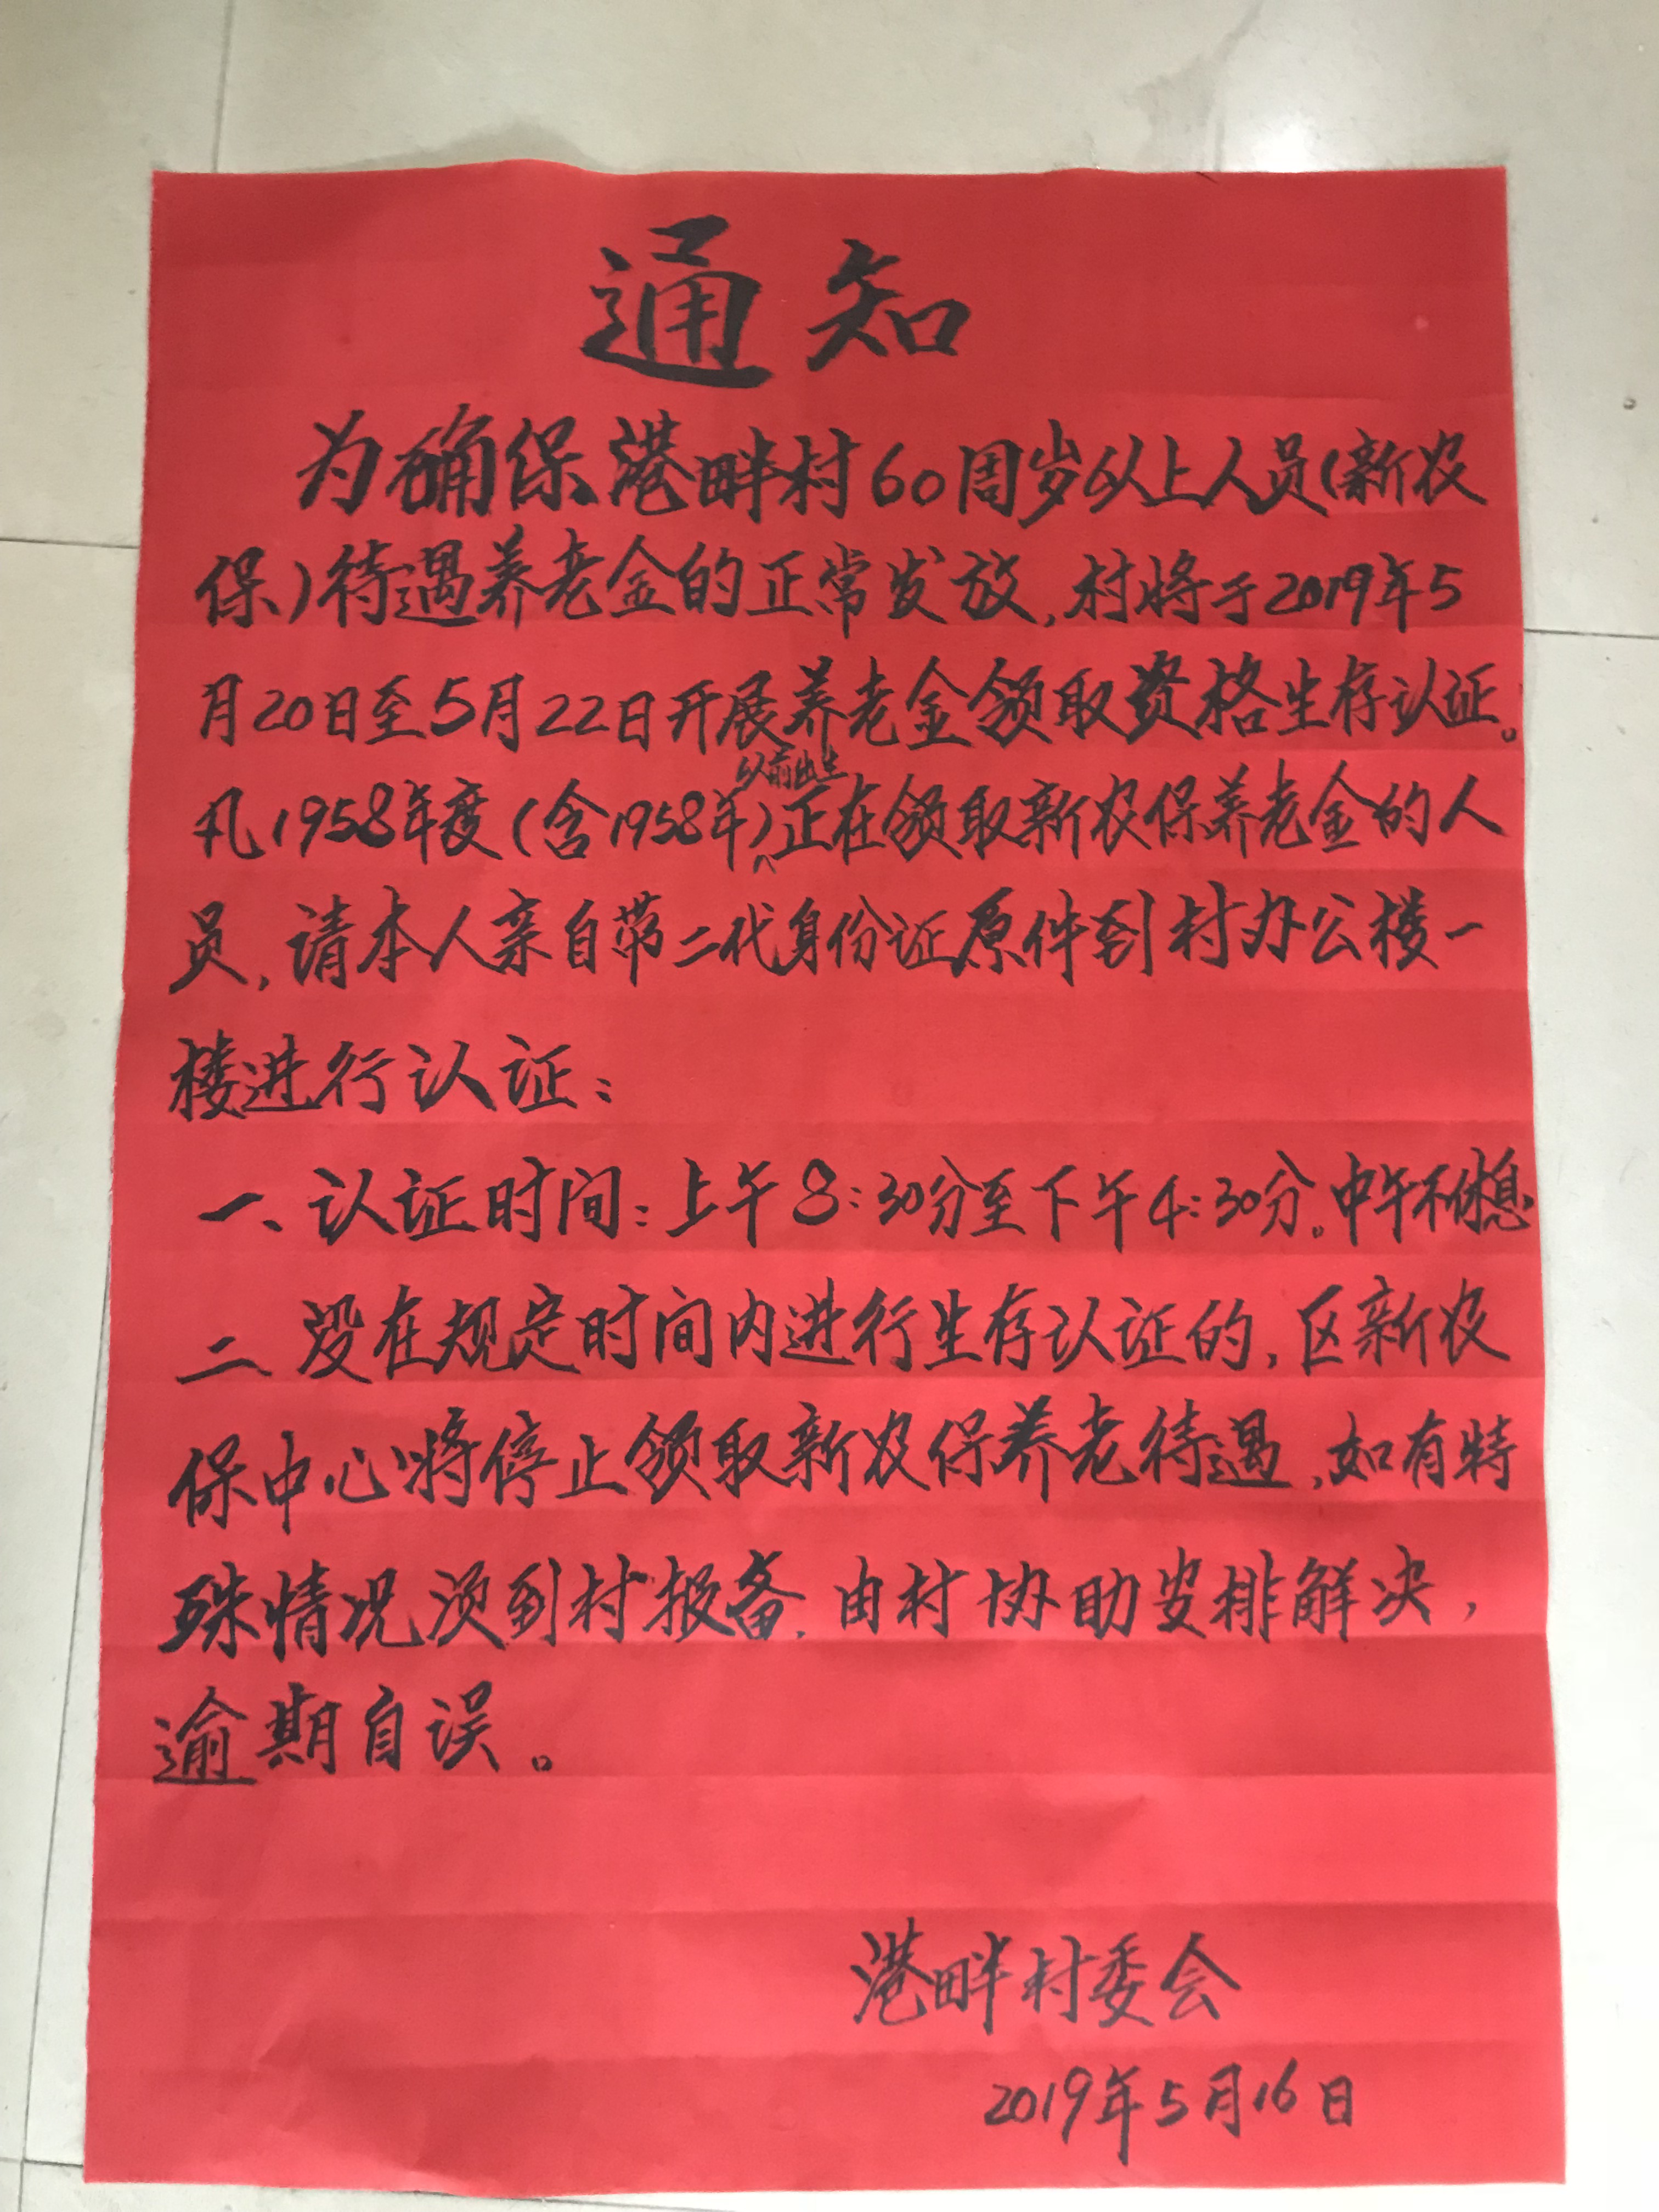 通知
为确保港畔村60周岁以上人员(新农
保)待遇养老金的正常发放,村将于2019年5
月20日至5月22日开展养老金领取资格生存认证。
以前出生
凡1958年度(含1958年)正在领取新农保养老金的人
员,请本人亲自带二代身份证原件到村办公楼一
楼进行认证:
一、认证时间:上午8:30分至下午4:30分。中午不休息
二、没在规定时间内进行生存认证的,区新农
保中心将停止领取新农保养老待遇,如有特
殊情况须到村报备.由村协助安排解决,
逾期自误。
港畔村委会
2019年5月16日